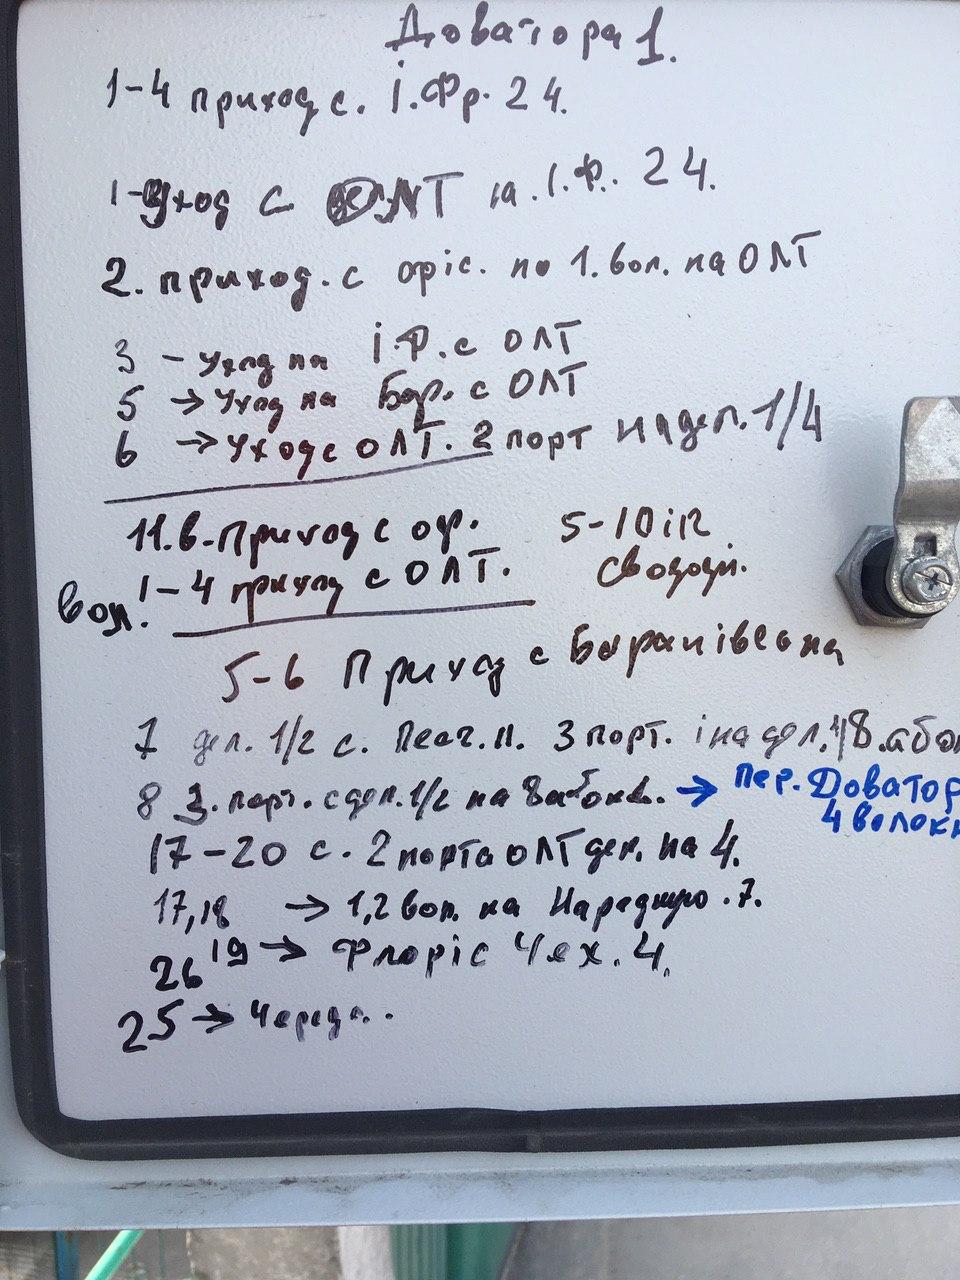 Доватора 1.
1-4 приход с. І.Фр. 24.
Уход с ОЛТ на І.Ф. 24.
2. приход. с офіс. по 1. вол. на ОЛТ
3 - Уход на І.Ф. с ОЛТ
5 → Уход на Бар. с ОЛТ
6 → Уход с ОЛТ. 2 порт на дел. 1/4
11.в. Приход с оф.
5-10
свободн.
вол. 1-4 приход с ОЛТ.
5-6 Приход с
7 дел. 1/2 с. 3 порт. і на дел. 1/8. або
8 3. порт. с дел. 1/2 на 8 абонв. → пер. Доватор
4 волок
17-20 с. 2 порта ОЛТ дел. на 4.
17,18 → 1,2 вол. на .7.
19 → Флоріс Чех. 4.
26
25 →